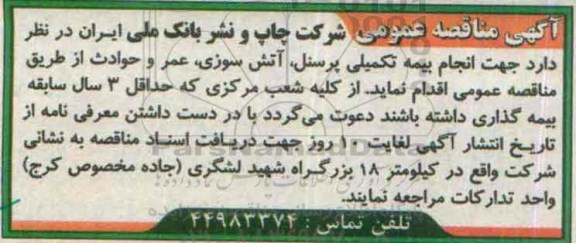 آگهی مناقصه عمومی شرکت چاپ و نشر بانک ملی ایران در نظر
دارد جهت انجام بیمه تکمیلی پرسنل، آتش سوزی، عمر و حوادث از طریق
مناقصه عمومی اقدام نماید. از کلیه شعب مرکزی که حداقل ۳ سال سابقه
بیمه گذاری داشته باشند دعوت می‌گردد با در دست داشتن معرفی نامه از
تاریخ انتشار آگهی لغایت ۱۰ روز جهت دریافت اسناد مناقصه به نشانی
شرکت واقع در کیلومتر ۱۸ بزرگراه شهید لشگری (جاده مخصوص کرج)
واحد تدارکات مراجعه نمایند.
تلفن تماس : ۴۴۹۸۳۳۷۴